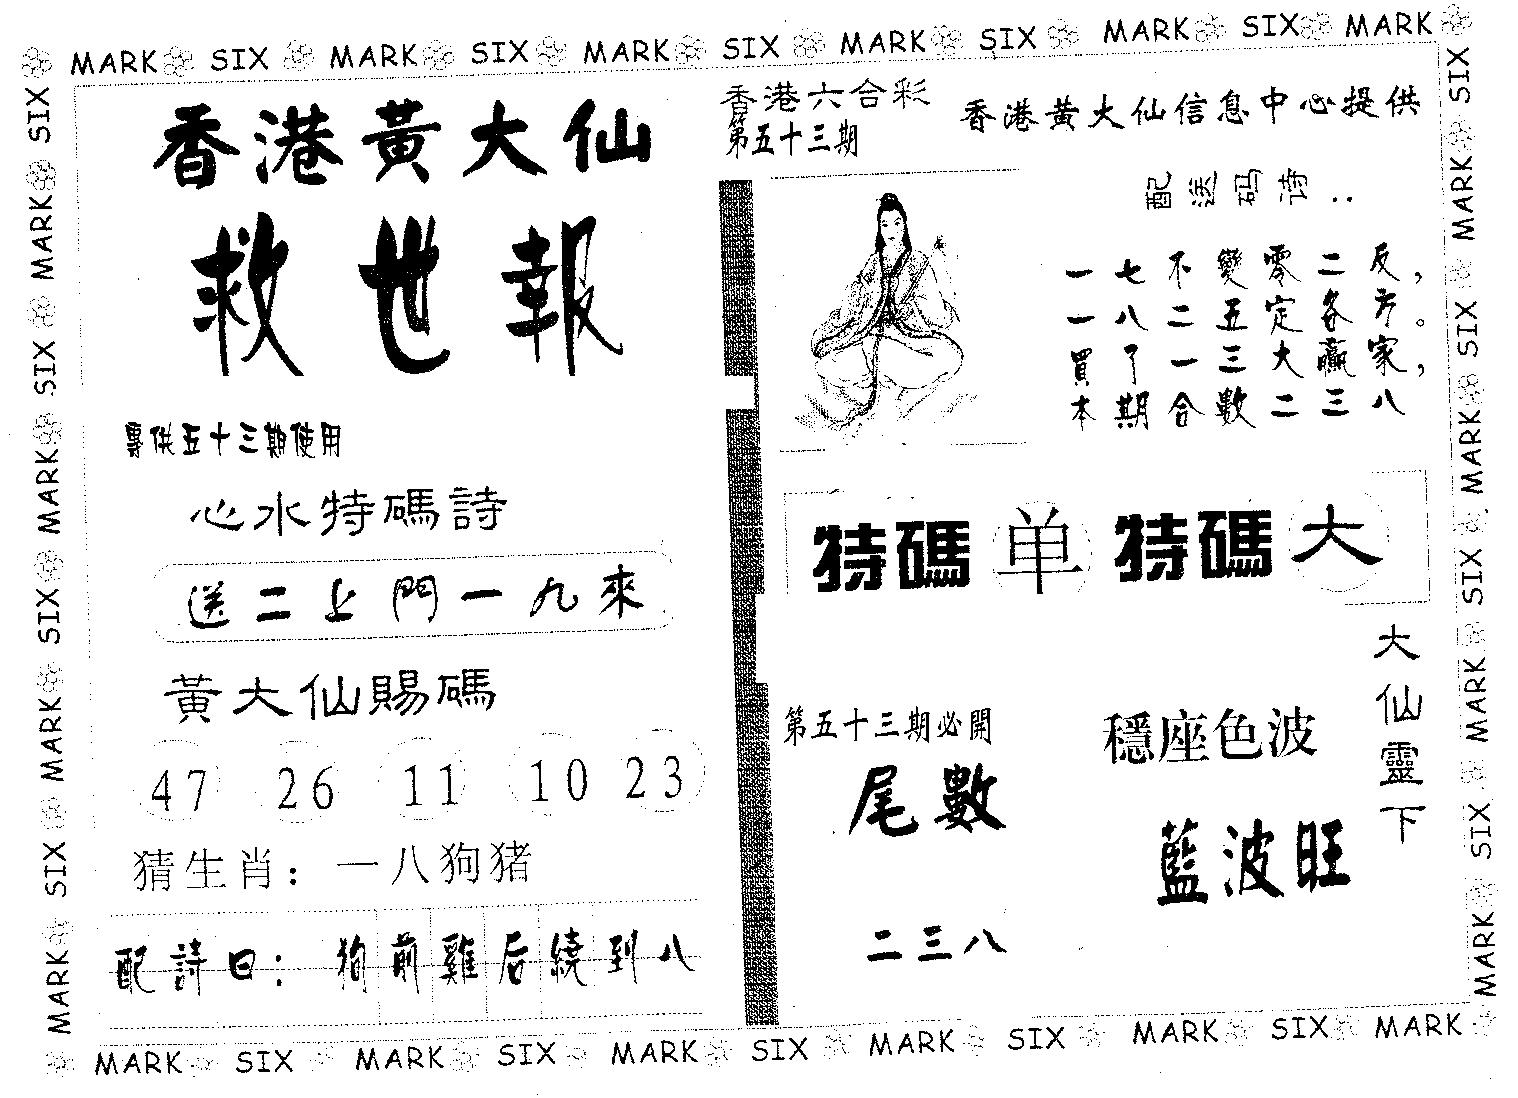 MARK SIX MARK SIX MARK SIX MARK SIX MARK SIX MARK
香港黃大仙
救世報
專供五十三期使用
心水特碼詩
送二上門一九來
黃大仙賜碼
47 26 11 10 23
猜生肖：一八狗猪
配詩曰：狗前雞后繞到八
香港六合彩
第五十三期
香港黄大仙信息中心提供
配送码诗..
一七不變零二反，
一八二五定各方。
買了一三大贏家，
本期合數二三八
特碼单 特碼大
第五十三期必開
尾數
二三八
穩座色波
藍波旺
大仙靈下
SIX MARK SIX MARK SIX MARK SIX MARK
SIX MARK SIX MARK SIX MARK SIX MARK
MARK SIX MARK SIX MARK SIX MARK SIX MARK SIX MARK